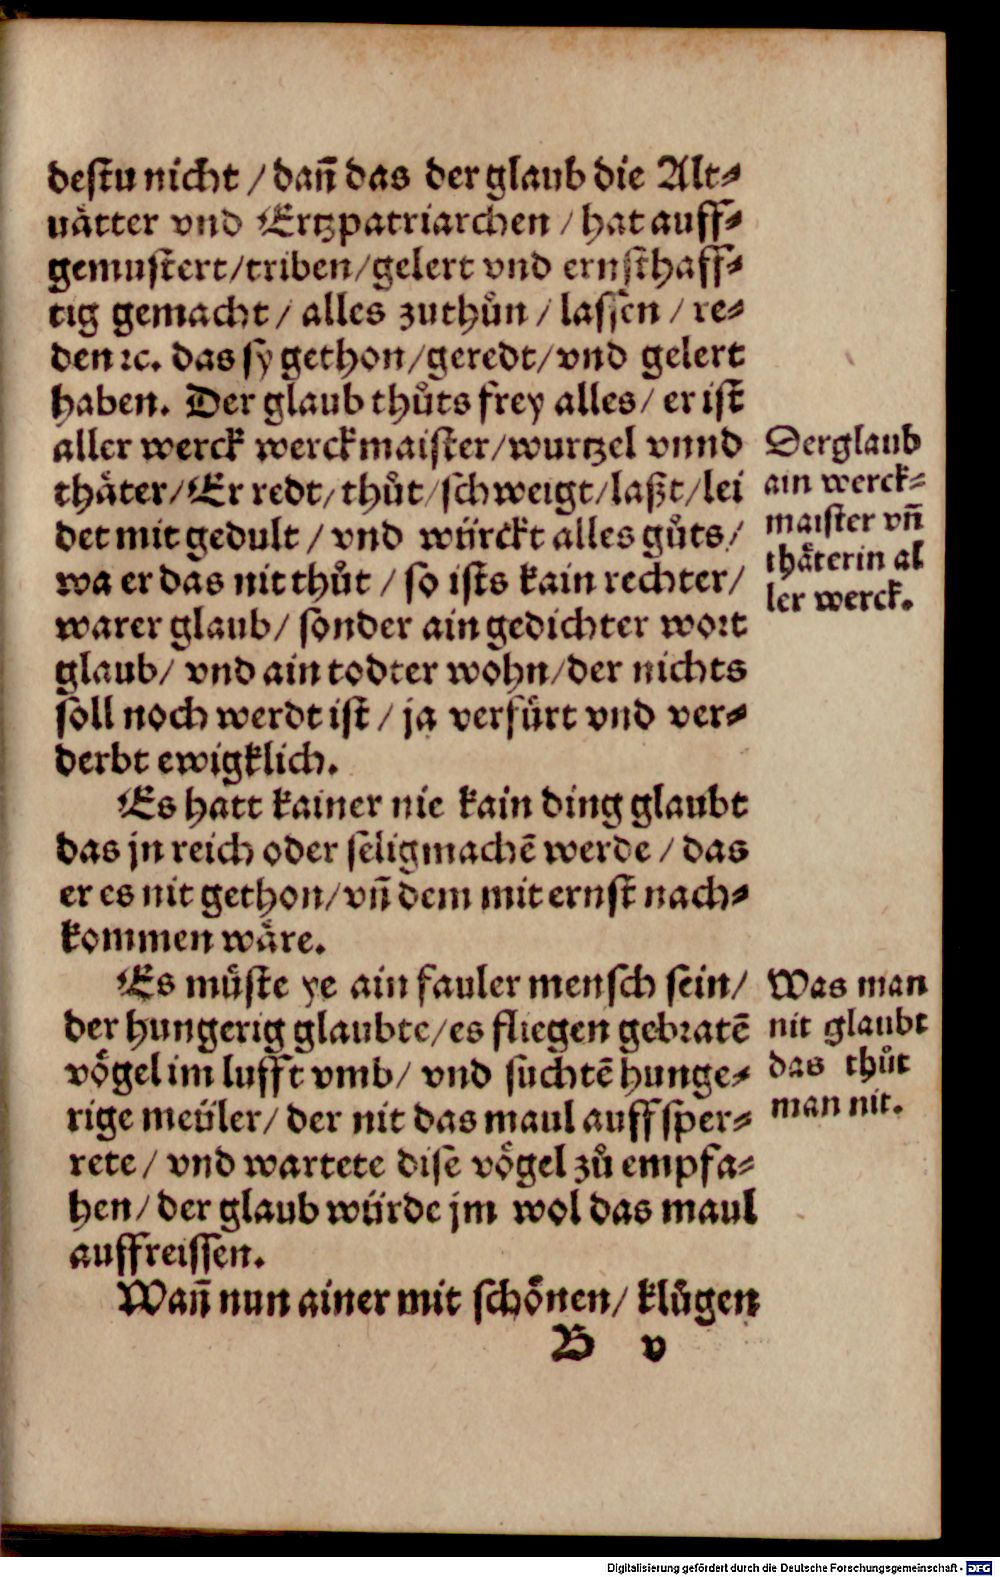 destu nicht / dañ das der glaub die Alt⸗
uåtter vnd Ertzpatriarchen / hat auff⸗
gemustert/triben/gelert vnd ernsthaff⸗
tig gemacht / alles zuthůn / lassen / re⸗
den ꝛc. das sy gethon/geredt/vnd gelert
haben. Der glaub thůts frey alles/ er ist
aller werck werckmaister/wurtzel vnnd
thåter/Er redt/thůt/schweigt/laßt/lei
det mit gedult / vnd würckt alles gůts/
wa er das nit thůt / so ists kain rechter/
warer glaub/ sonder ain gedichter wort
glaub/ vnd ain todter wohn/der nichts
soll noch werdt ist / ja verfürt vnd ver⸗
derbt ewigklich.
Es hatt kainer nie kain ding glaubt
das jn reich oder selig machē werde / das
er es nit gethon/vñ dem mit ernst nach⸗
kommen wåre.
Es můste ye ain fauler mensch sein/
der hungerig glaubte/es fliegen gebratē
vögel im lufft vmb/ vnd suchtē hunge⸗
rige meüler/ der nit das maul auff sper⸗
rete / vnd wartete dise vögel zů empfa⸗
hen/ der glaub würde jm wol das maul
auffreissen.
Wañ nun ainer mit schönen/ klůgen
B v
Der glaub
ain werck⸗
maister vñ
thåterin al
ler werck.
Was man
nit glaubt
das thůt
man nit.
Digitalisierung gefördert durch die Deutsche Forschungsgemeinschaft - DFG